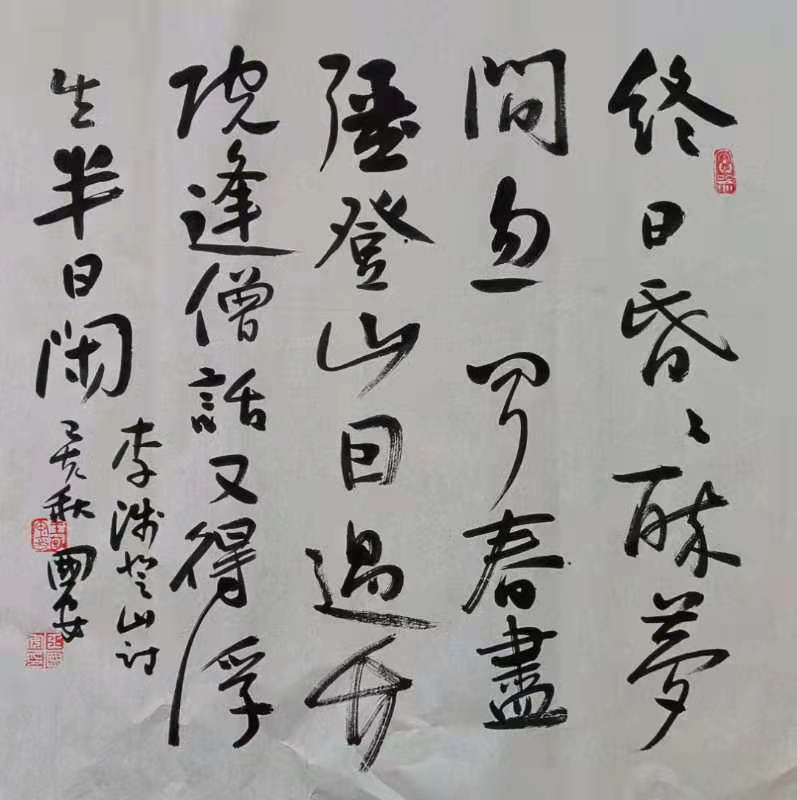 終日昏〻醉夢
間忽聞春盡
強登山因過竹
院逢僧話又得浮
生半日閑
李涉登山詩
己亥秋